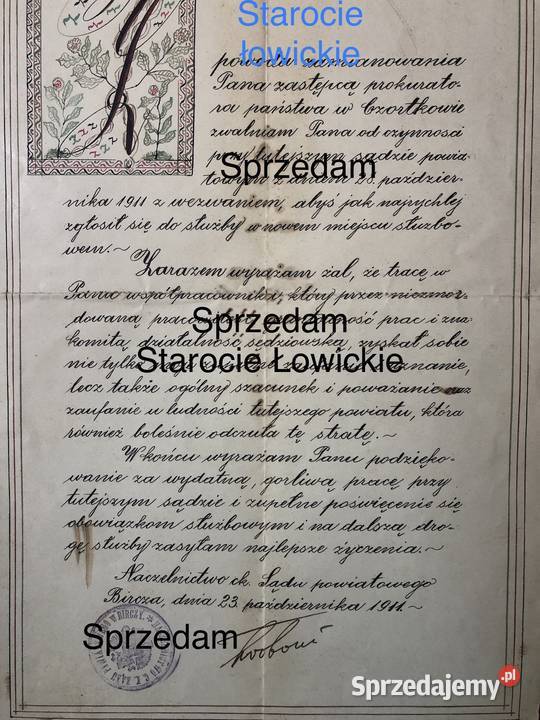 Starocie
łowickie
powodu zamianowania
Pana zastępcą prokurato-
ra państwa w Czortkowie
zwalniam Pana od czynności
przy tutejszym sądzie powia-
towym z dniem 25. paździer-
Sprzedam
nika 1911 z wezwaniem, abyś jak najrychlej
zgłosił się do służby w nowem miejscu służbo-
wem.~
Zarazem wyrażam żal, że tracę w
Panu współpracownika, który przez niezmor-
dowaną pracowitość prac i zna-
Sprzedam
komitą działalność sędziowską, zyskał sobie
nie tylko uznanie,
Starocie Łowickie
lecz także ogólny szacunek i poważanie oraz
zaufanie u ludności tutejszego powiatu, która
również boleśnie odczuła tę stratę.~
W końcu wyrażam Panu podzięko-
wanie za wydatną, gorliwą pracę przy
tutejszym sądzie i zupełne poświęcenie się
obowiązkom służbowym i na dalszą dro-
gę służby zasyłam najlepsze życzenia.~
Naczelnictwo ck. Sądu powiatowego
Bircza, dnia 23. października 1911.~
Sprzedam
Sprzedajemy.pl